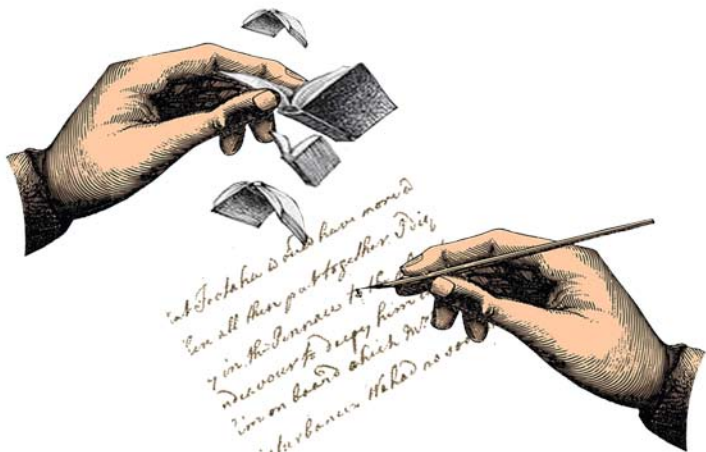 would have more
all them put together I
in the Pinnace to the
ndeavour to decoy him
im on board which Mr
isturbance We had no